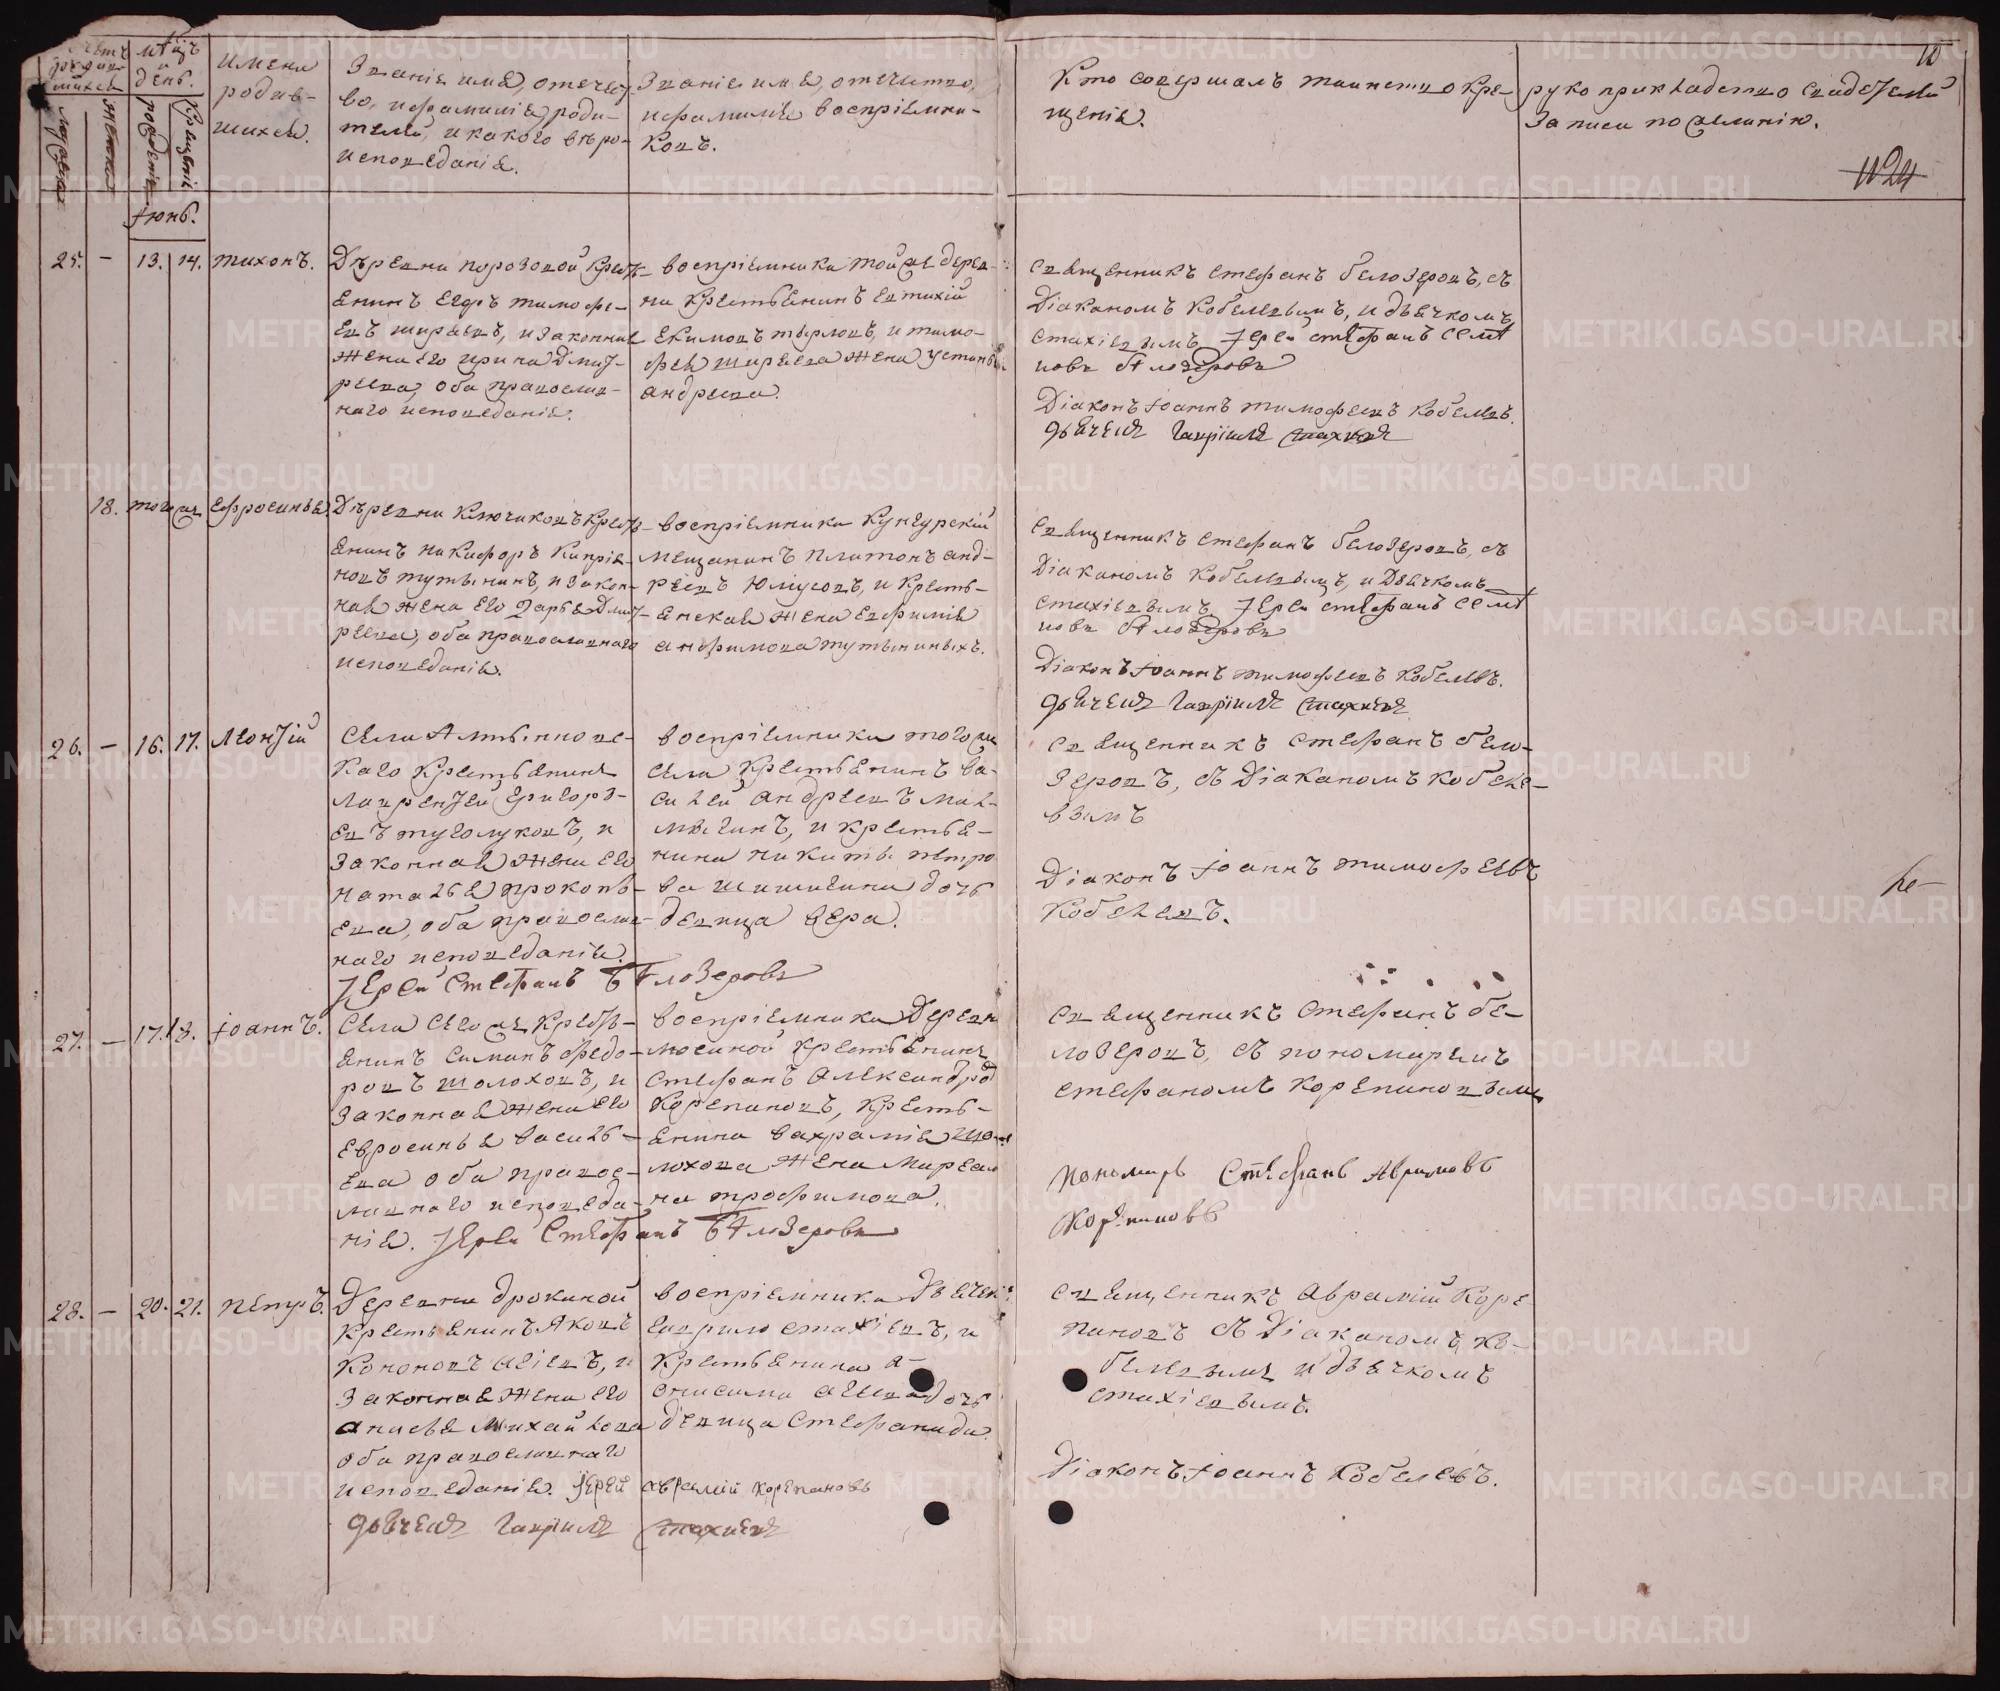 Счетъ родив-шихся
мѣсяцъ и день.
имена родив-шихся.
Званіе имя, отечест-
во, и фамилія роди-
телей, и какого вѣро-
исповеданія.
Званіе имя, отечество,
и фамилія воспріемни-
ковъ.
Кто совершалъ таинство кре-
щенія.
рукоприкладство свидетелей
записи по желанію.
10
24
мужеска
женска
рожденія
крещенія
Іюнь.
25. – 13. 14. тихонъ.
Деревни порозовой крестъ-
янинъ егоръ тимофе-
евъ ширяевъ, и законная
жена его ирина дмит-
реева, оба православ-
наго исповеданія.
воспріемники той же дерев-
ни крестьянинъ евтихій
екимовъ тюрловъ, и тимо-
фея ширяева жена устинья
андреева.
священникъ стефанъ белозеровъ, съ
Діакономъ кобелевымъ, и дьячкомъ
стахіевымъ Іерей стефанъ семе
новъ бѣлозеровъ
Діаконъ Іоаннъ тимофеевъ кобелевъ.
дьячекъ гавріилъ стахиевъ
18. того же ефросинья.
Деревни ключиковъ кресть-
янинъ никифоръ кипріа-
новъ тутынинъ, и закон-
ная жена его дарья дмит-
реева, оба православнаго
исповеданія.
воспріемники кунгурскій
мещанинъ платонъ анд-
реевъ юлусовъ, и кресть-
янская жена евфимія
анфимова тутыниныхъ.
священникъ стефанъ белозеровъ, съ
Діакономъ кобелевымъ, и дьячкомъ
стахіевымъ Іерей стефанъ семе
новъ бѣлозеровъ
Діаконъ Іоаннъ тимофеевъ кобелевъ.
дьячекъ гавріилъ стахиевъ
26. – 16. 17. Леонтій
села Алтынновс-
каго крестьянинъ
лаврентей григорь-
евъ туголуковъ, и
законная жена его
наталья прокопь-
ева, оба православ-
наго исповеданія.
Іерей Стефанъ Бѣлозеровъ
воспріемники того же
села крестьянинъ ва-
силей андреевъ мал-
мыгинъ, и крестья-
нина никиты петро
ва шишигина дочь
девица вера.
священникъ стефанъ бело-
зеровъ, съ Діакономъ кобеле-
вымъ
Діаконъ Іоаннъ тимофеевъ
кобелевъ.
27. – 17. 18. Іоаннъ.
села сего же кресть-
янинъ симанъ федо-
ровъ шолоховъ, и
законная жена его
евросинья василь-
ева оба правос-
лавнаго исповеда-
нія. Іерей Стефанъ Бѣлозеровъ
воспріемники деревни
мосиной крестьянинъ
стефанъ александров
корепановъ, кресть-
янина вахрамѣя шо-
лохова жена марея
на трофимова.
священникъ стефанъ бе-
лозеровъ, съ пономаремъ
стефаномъ корепановымъ
пономарь Стефанъ Аврамовъ
Корепановъ
28. – 20. 21. петръ.
Деревни дрокиной
крестьянинъ Яковъ
кононовъ
законная жена его
анисья михайлова
оба православнаго
исповеданія. Іерей аврамій корепановъ
дьячекъ гавріилъ стахиевъ
воспріемники дьячекъ
гаврило стахіевъ, и
крестьянина а-
нисима дочь
девица стефанида.
священникъ аврамій коре
пановъ съ Діакономъ ко-
белевымъ и дьячкомъ
стахіевымъ.
Діаконъ Іоаннъ кобелевъ.
METRIKI.GASO-URAL.RU